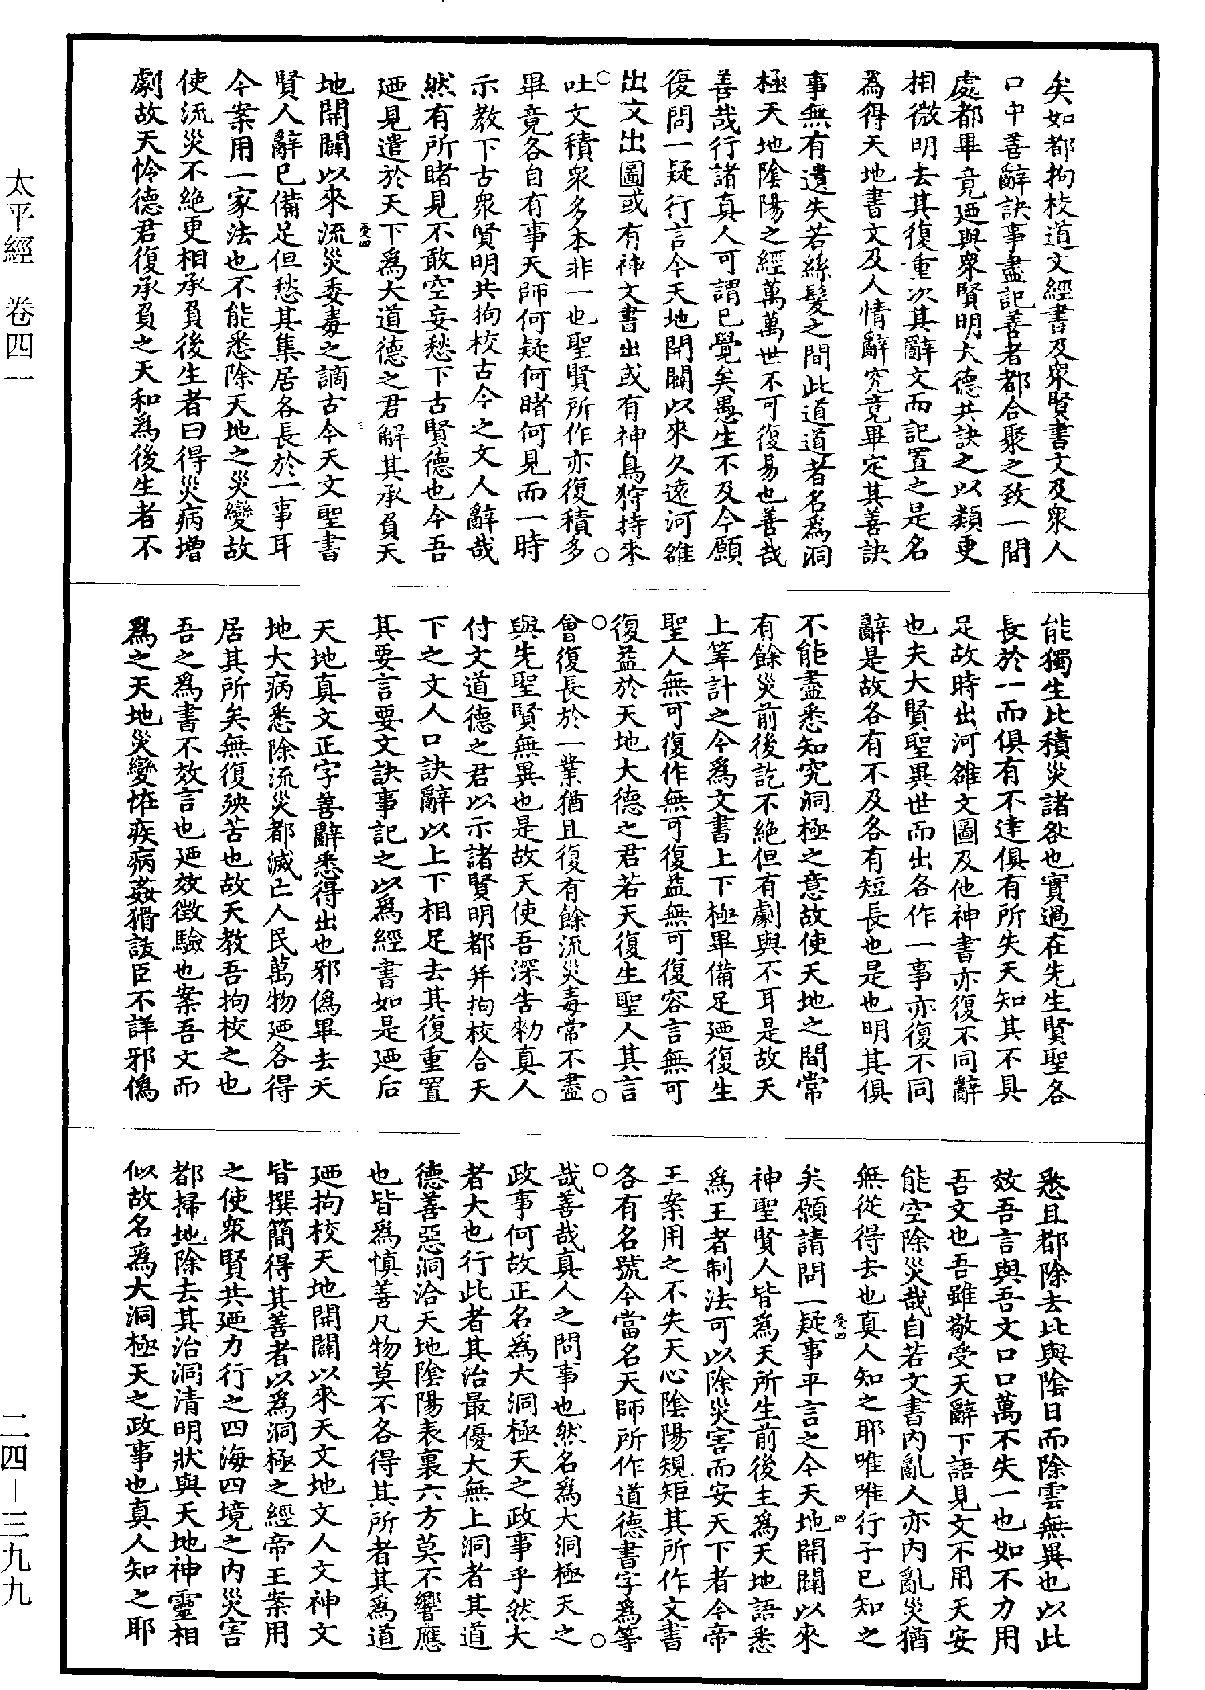 矣如都拘校道文經書及衆賢書文及衆人
口中善辭訣事盡記善者都合聚之致一間
處都畢竟廼與衆賢明大德共訣之以類更
相微明去其復重次其辭文而記置之是名
為得天地書文及人情辭究竟畢定其善訣
事無有遺失若絲髮之間此道道者名為洞
極天地陰陽之經萬萬世不可復易也善哉
善哉行諸真人可謂已覺矣愚生不及今願
復問一疑行言今天地開闢以來久遠河雒
出文出圖或有神文書出或有神鳥狩持來
吐文積衆多本非一也聖賢所作亦復積多
畢竟各自有事天師何疑何睹何見而一時
示教下古衆賢明共拘校古今之文人辭哉
然有所睹見不敢空妄愁下古賢德也今吾
廼見遣於天下為大道德之君解其承負天
地開闢以來流災委毒之謫古今天文聖書
賢人辭已備足但愁其集居各長於一事耳
今案用一家法也不能悉除天地之災變故
使流災不絕更相承負後生者曰得災病增
劇故天怜德君復承負之天和為後生者不
能獨生比積災諸咎也實過在先生賢聖各
長於一而俱有不達俱有所失天知其不具
足故時出河雒文圖及他神書亦復不同辭
也夫大賢聖異世而出各作一事亦復不同
辭是故各有不及各有短長也是也明其俱
不能盡悉知究洞極之意故使天地之間常
有餘災前後訖不絕但有劇與不耳是故天
上筭計之今為文書上下極畢備足廼復生
聖人無可復作無可復益無可復容言無可
復益於天地大德之君若天復生聖人其言
會復長於一業猶且復有餘流災毒常不盡
與先聖賢無異也是故天使吾深告勑真人
付文道德之君以示諸賢明都并拘校合天
下之文人口訣辭以上下相足去其復重置
其要言要文訣事記之以為經書如是廼后
天地真文正字善辭悉得出也邪偽畢去天
地大病悉除流災都滅亡人民萬物廼各得
居其所矣無復殃苦也故天教吾拘校之也
吾之為書不效言也廼效徵驗也案吾文而
為之天地災變怪疾病姦猾訞臣不詳邪偽
悉且都除去比與陰日而除雲無異也以此
效吾言與吾文口口萬不失一也如不力用
吾文也吾雖敬受天辭下語見文不用天安
能空除災哉自若文書內亂人亦內亂災猶
無從得去也真人知之耶唯唯行子已知之
矣願請問一疑事平言之今天地開闢以來
神聖賢人皆為天所生前後主為天地語悉
為王者制法可以除災害而安天下者今帝
王案用之不失天心陰陽規矩其所作文書
各有名號今當名天師所作道德書字為等
哉善哉真人之問事也然名為大洞極天之
政事何故正名為大洞極天之政事乎然大
者大也行此者其治最優大無上洞者其道
德善惡洞洽天地陰陽表裏六方莫不響應
也皆為慎善凡物莫不各得其所者其為道
廼拘校天地開闢以來天文地文人文神文
皆撰簡得其善者以為洞極之經帝王案用
之使衆賢共廼力行之四海四境之內災害
都掃地除去其治洞清明狀與天地神靈相
似故名為大洞極天之政事也真人知之耶
太平經　卷四一
二四—三九九